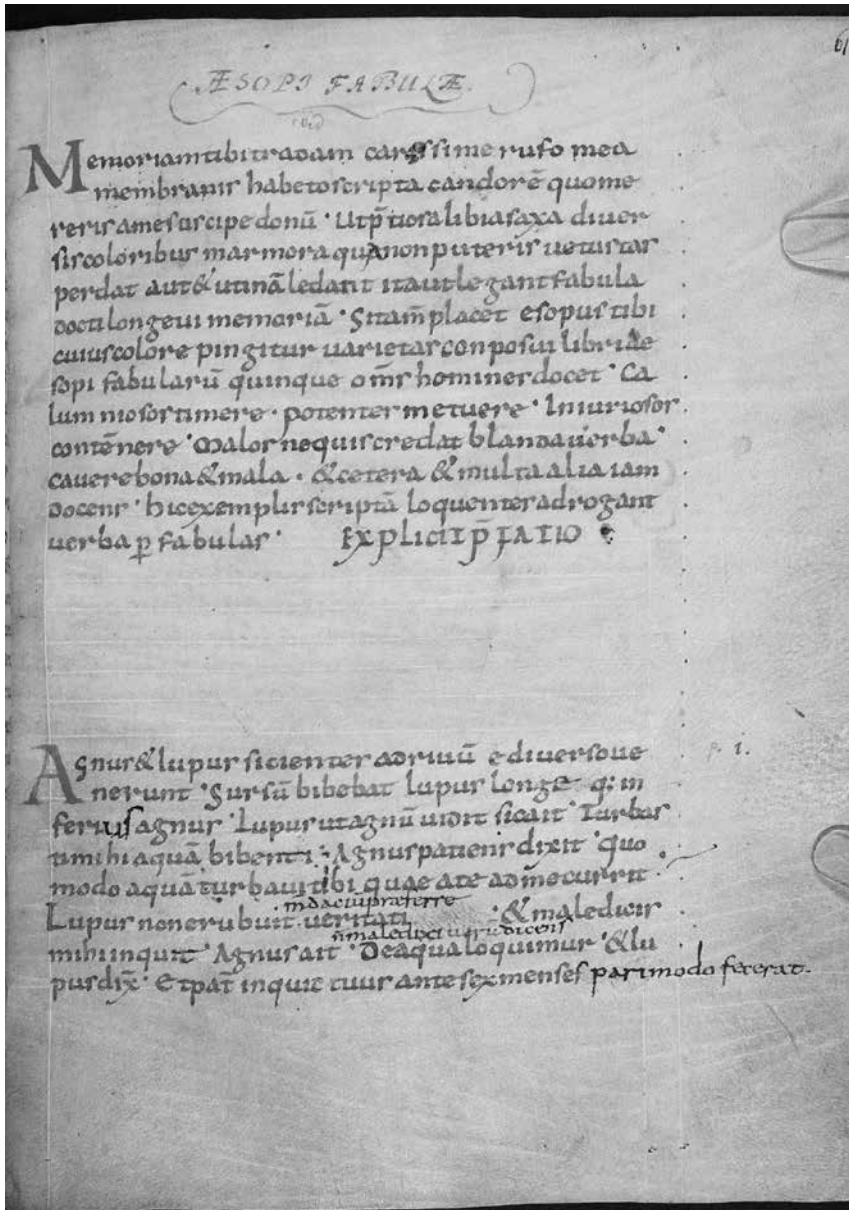 ÆSOPI FABULÆ.
Memoriam tibi tradam carissime rufo mea
membranis habeto scripta candorē quo me
reris a me suscipe donū · Ut p̄tiosa libia saxa diver
sis coloribus marmora qua non puteris vetustas
perdat aut & utinā ledant ita ut legant fabula
docti longevi memoriā · Si tam̄ placet esopus tibi
cuius colore pingitur varietas conposui libri Ae
sopi fabularū quinque om̄s homines docet · Ca
lumniosos timere · potentes metuere · Iniuriosos
contēnere · Malos ne quis credat blanda verba ·
cavere bona & mala · & cetera & multa alia iam
docens · hic exemplis scriptā loquentes adrogant
verba p̱ fabulas · EXPLICIT P̄FATIO
Agnus & lupus sicientes ad rivū e diverso ve
nerunt · Sursū bibebat lupus longe q; in
ferius agnus · Lupus ut agnū vidit sic ait · Turbas
ti mihi aquā bibenti · Agnus patiens dixit · quo
modo aquā turbavi tibi quae a te ad me currit
Lupus non erubuit veritati · & maledicis
mihi inquit · Agnus ait · De aqua loquimur · & lu
pus dix̄ · Et pat̄ inquit tuus ante sex menses pari modo fecerat.